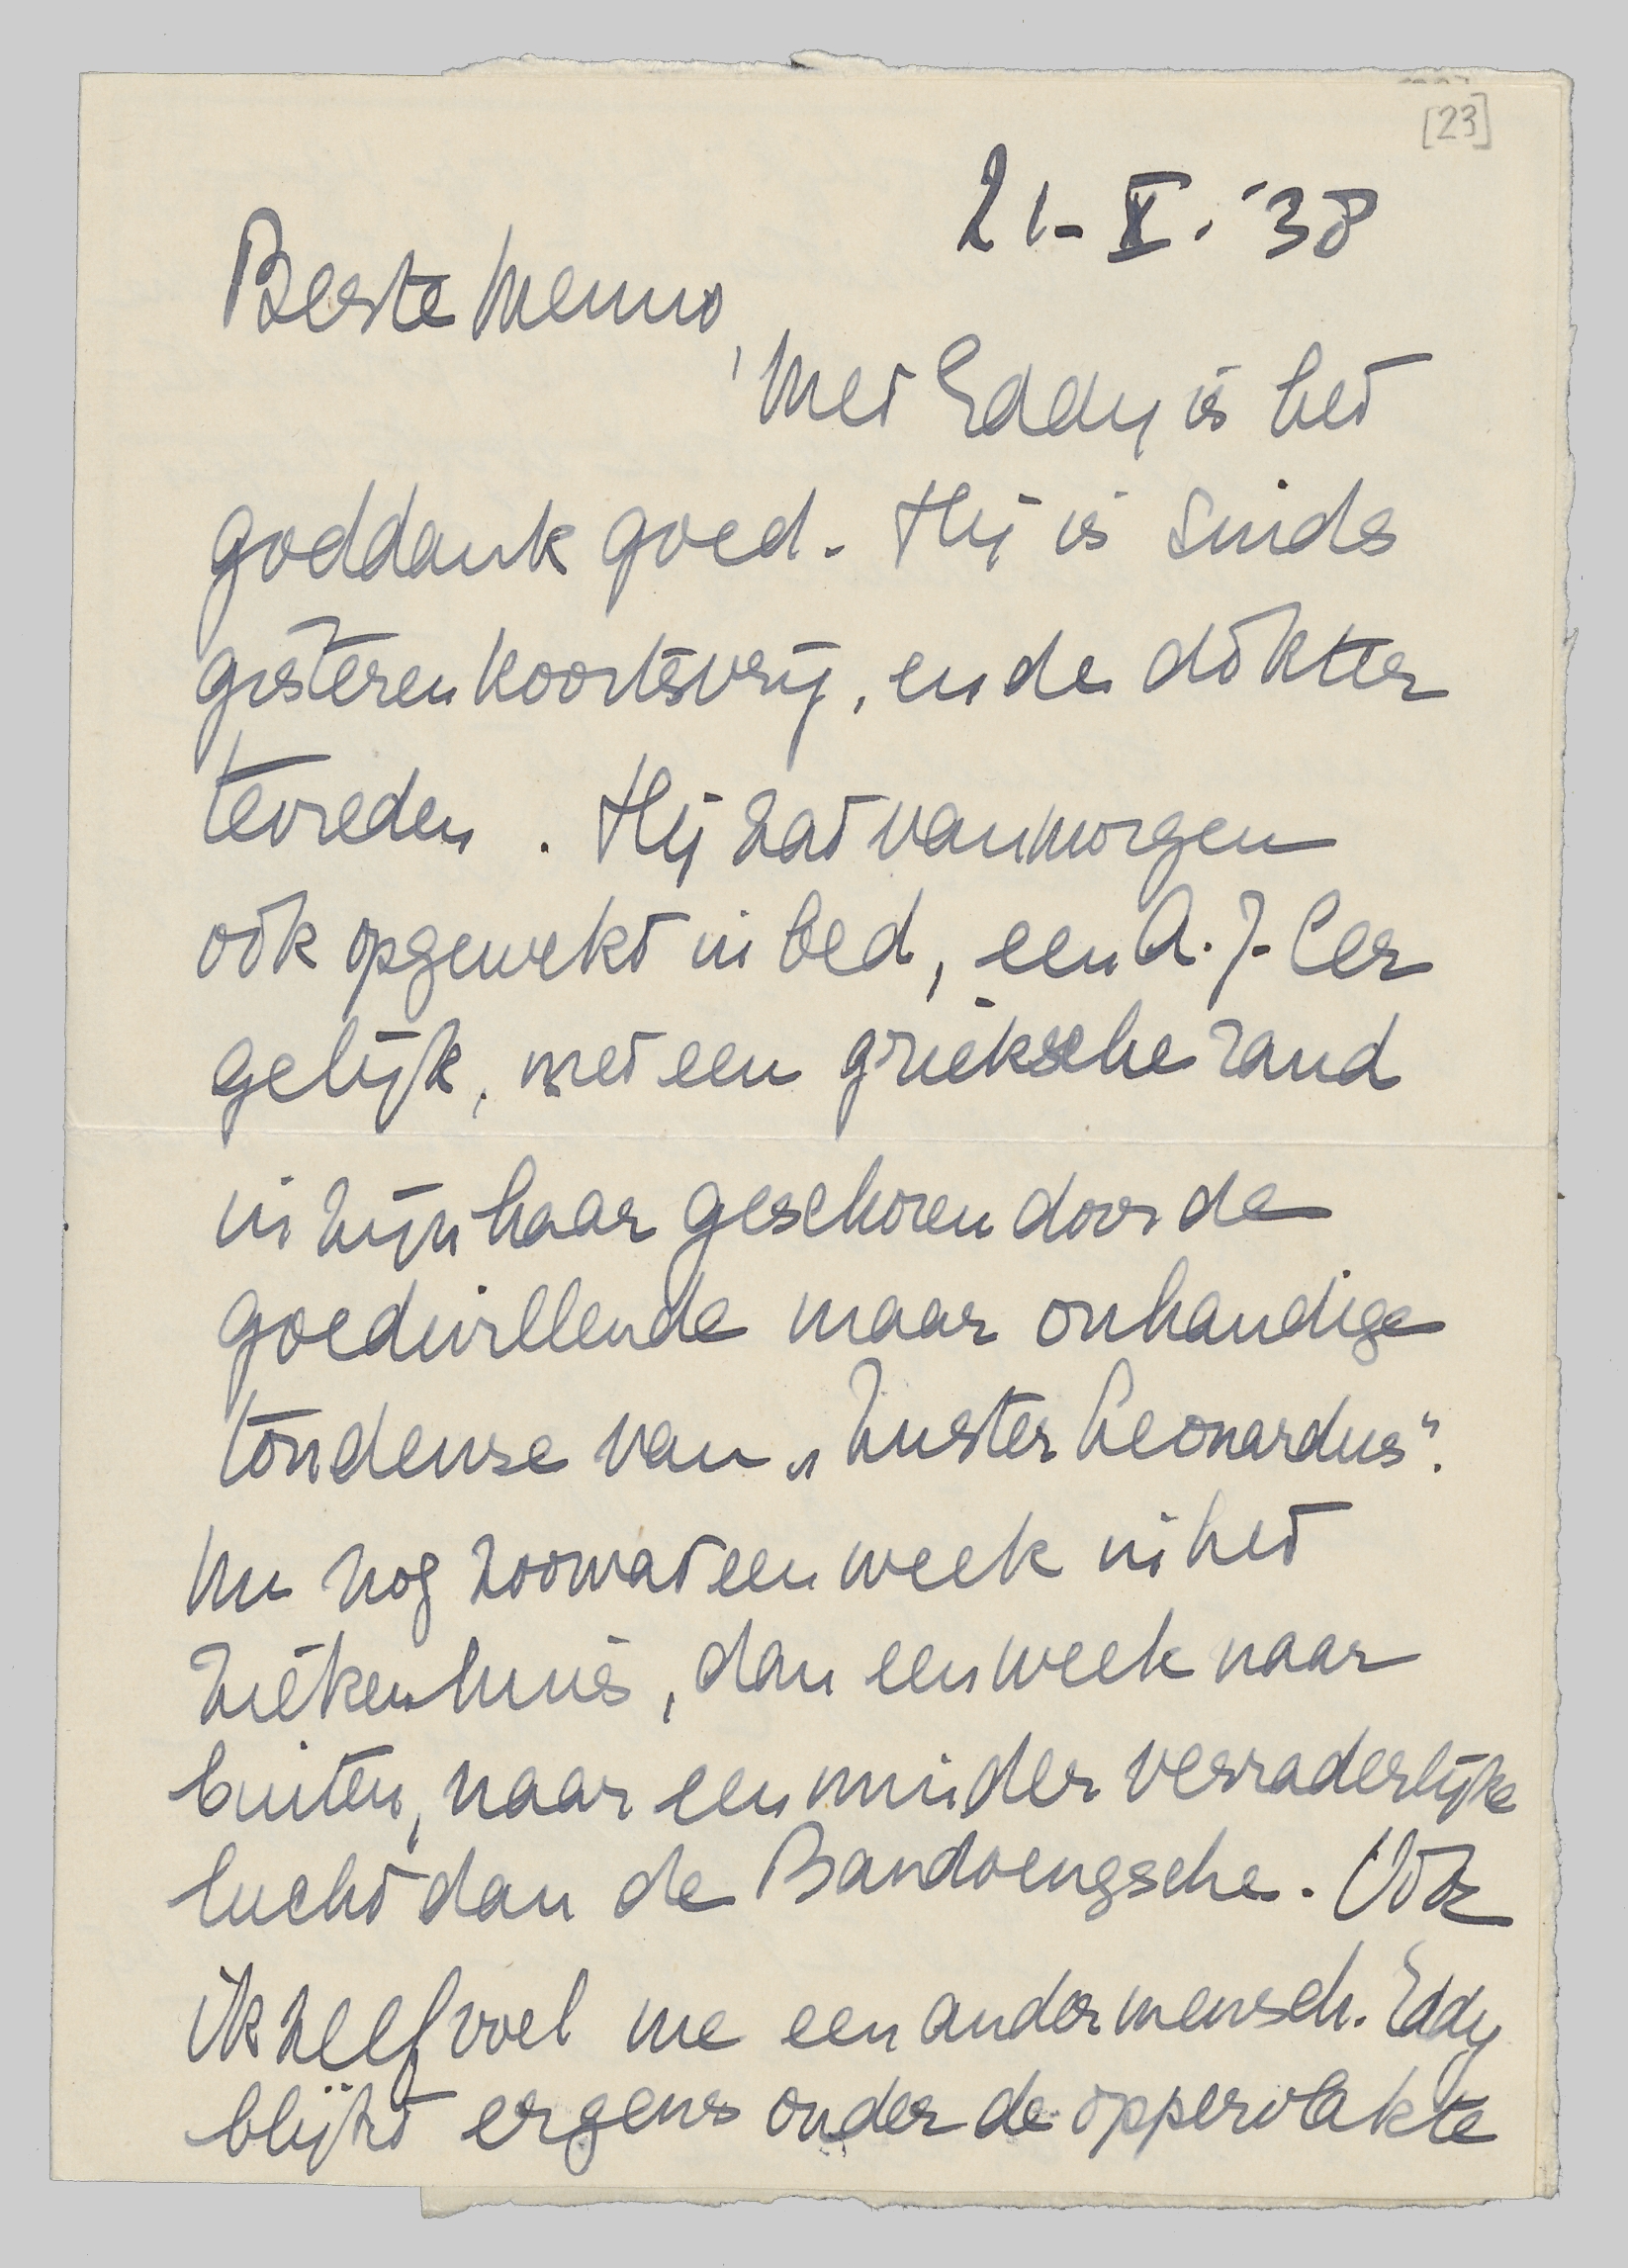 [23]
21-X.'38
Beste Menno,
Met Eddy is het
goddank goed. Hij is sinds
gisteren koortsvrij, en de dokter
tevreden. Hij zat vanmorgen
ook opgewekt in bed, een A.J. Cer
gelijk, met een grieksche rand
in zijn haar geschoren door de
goedwillende maar onhandige
tondeuse van „Zuster Leonardus".
Nu nog zoowat een week in het
ziekenhuis, dan een week naar
buiten, naar een minder verraderlijke
lucht dan de Bandoengsche. Ook
ik zelf voel me een ander mensch. Eddy
blijkt ergens onder de oppervlakte